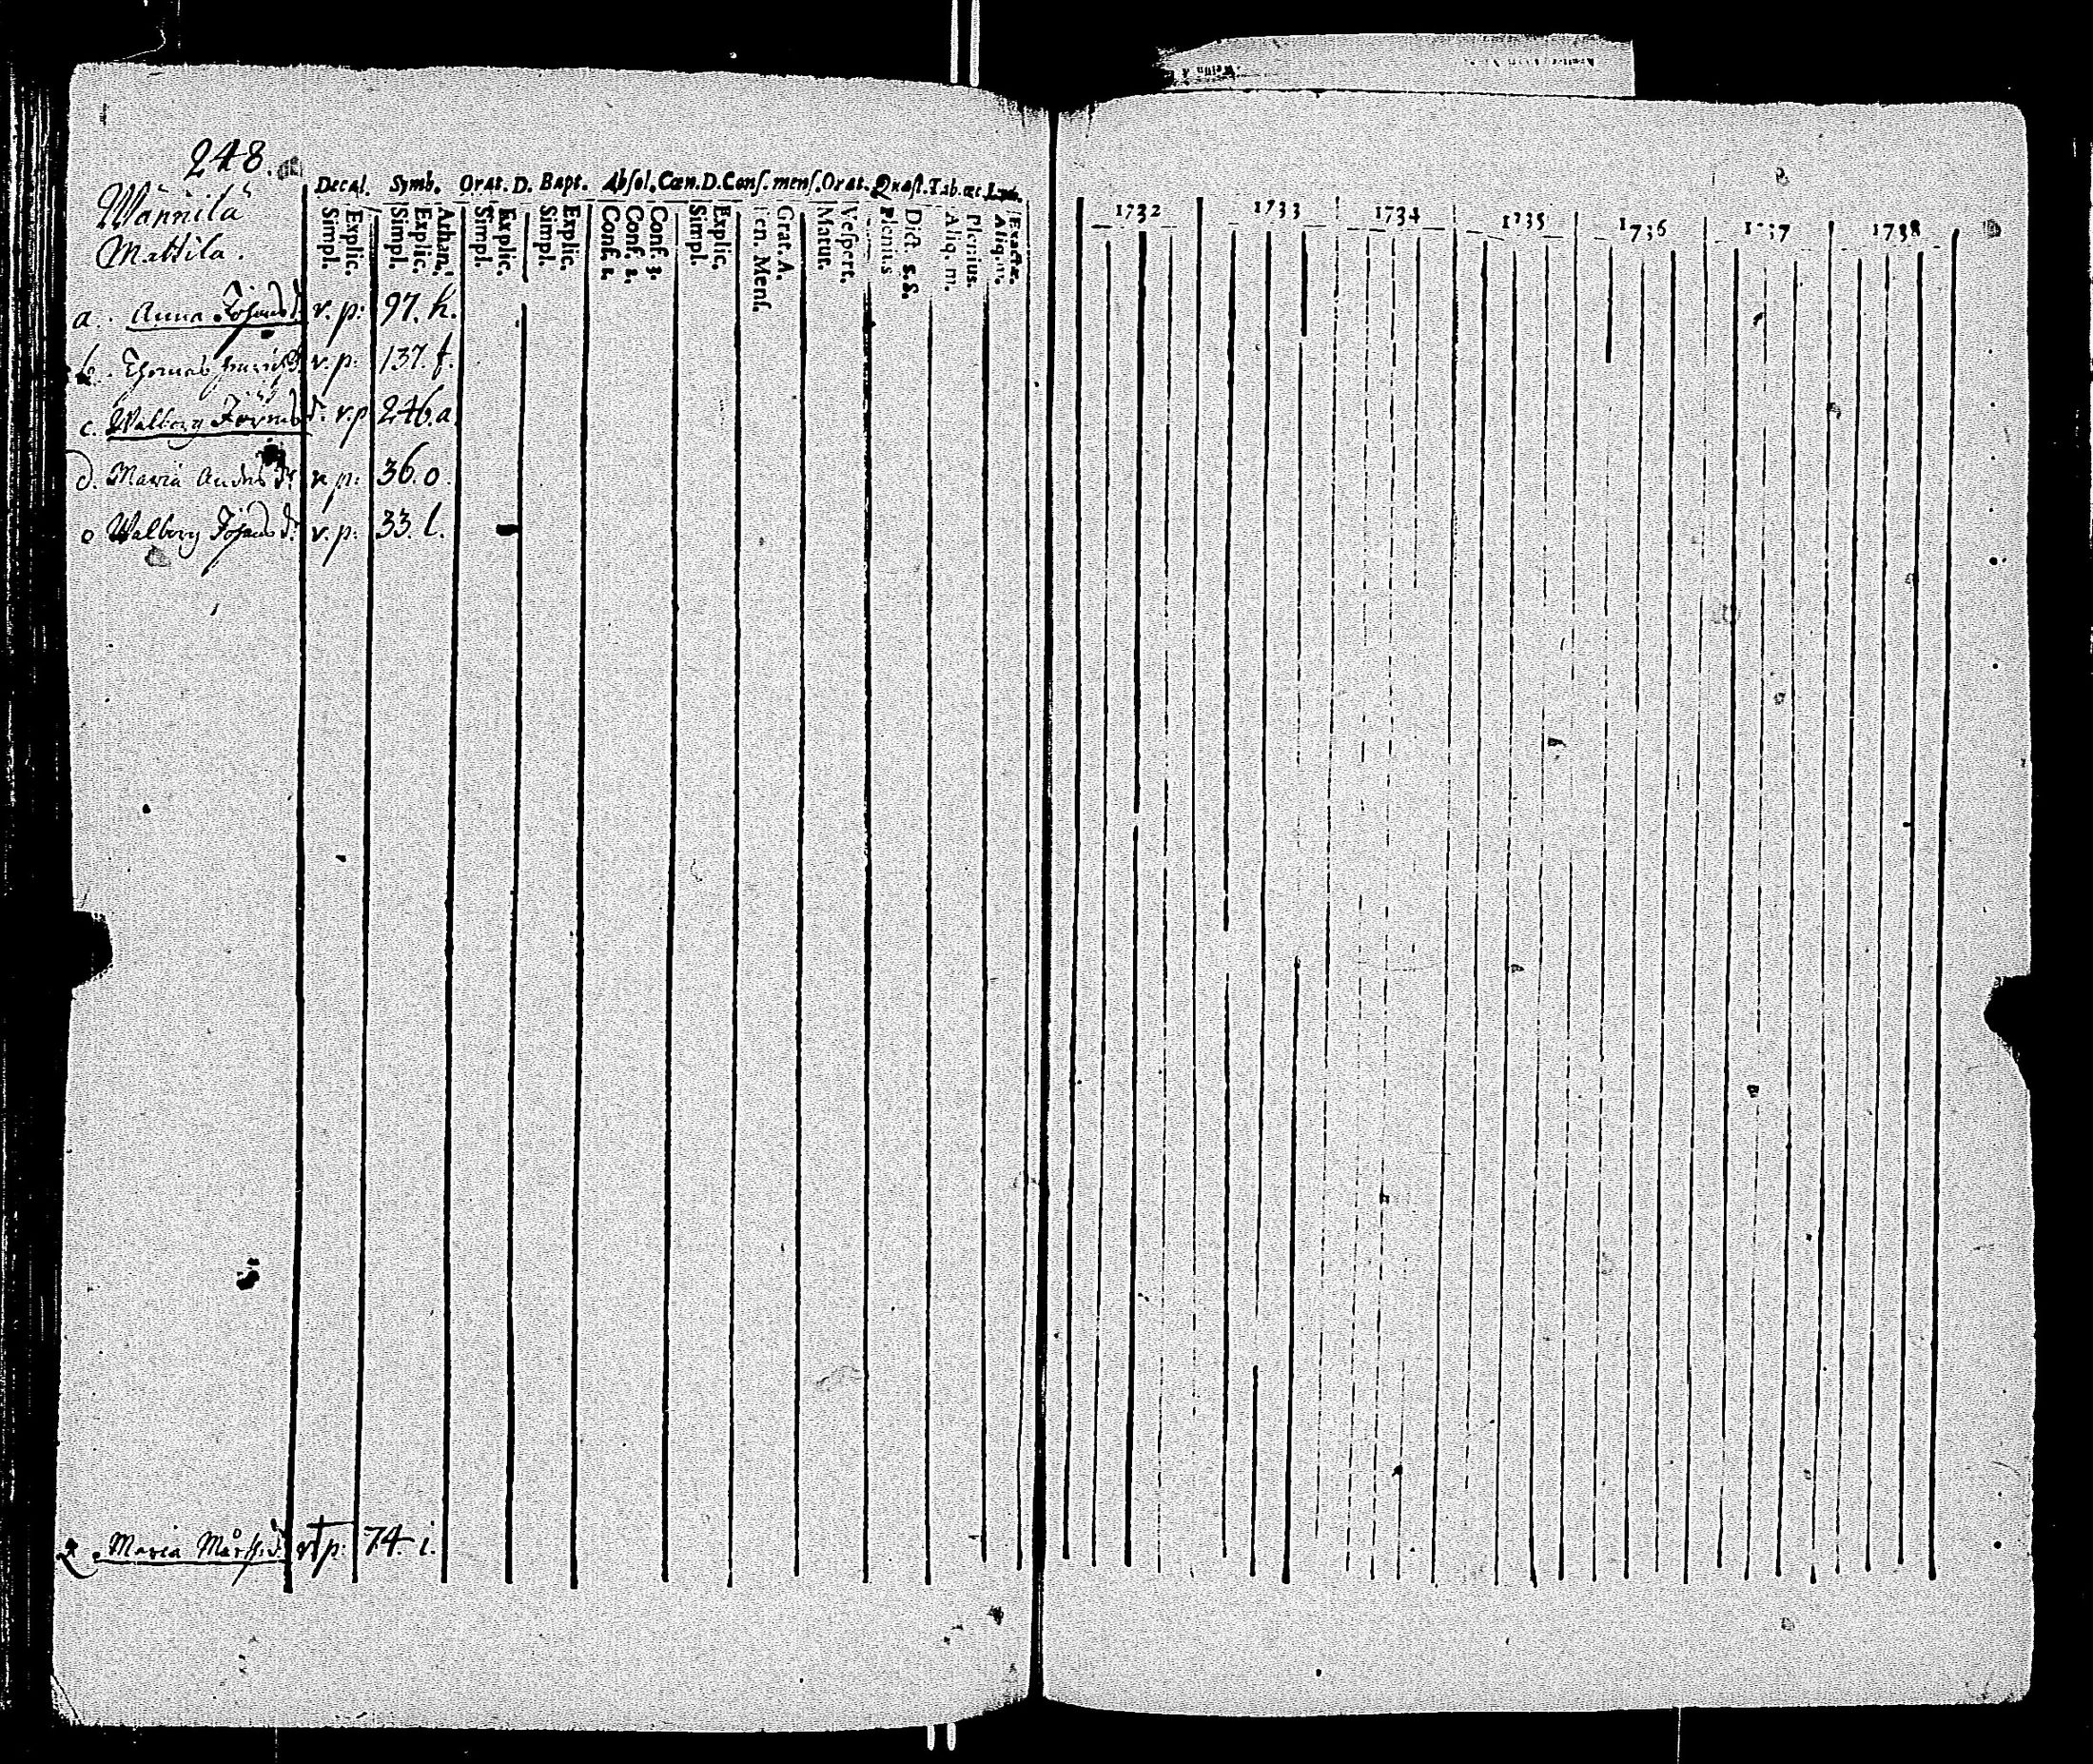 248.
Wännilä
Mattila.
Decal. Symb. Orat. D. Bapt. Absol. Cœn. D. Conf. mens. Orat. Quæst. Tab. œc.
Explic. Simpl.
Athan. Explic. Simpl.
Explic. Simpl.
Explic. Simpl.
Conf. 3. Conf. 2. Conf. 1.
Explic. Simpl.
Grat. A. Men. Mens.
Vespert. Matut.
Dict. S. S. Plenius
Plenius. Aliq. m.
Exacte. Aliq. m.
1732 1733 1734 1735 1736 1737 1738
a. Anna Johansd. v. p: 97. k.
b. Thomas v. p: 137. f.
c. Walborg d. v. p 246. a
d. Maria Andersd: v p: 36. o.
e Walborg Johansd: v. p: 33. l.
Maria Mårtsd. v p: 74. i.